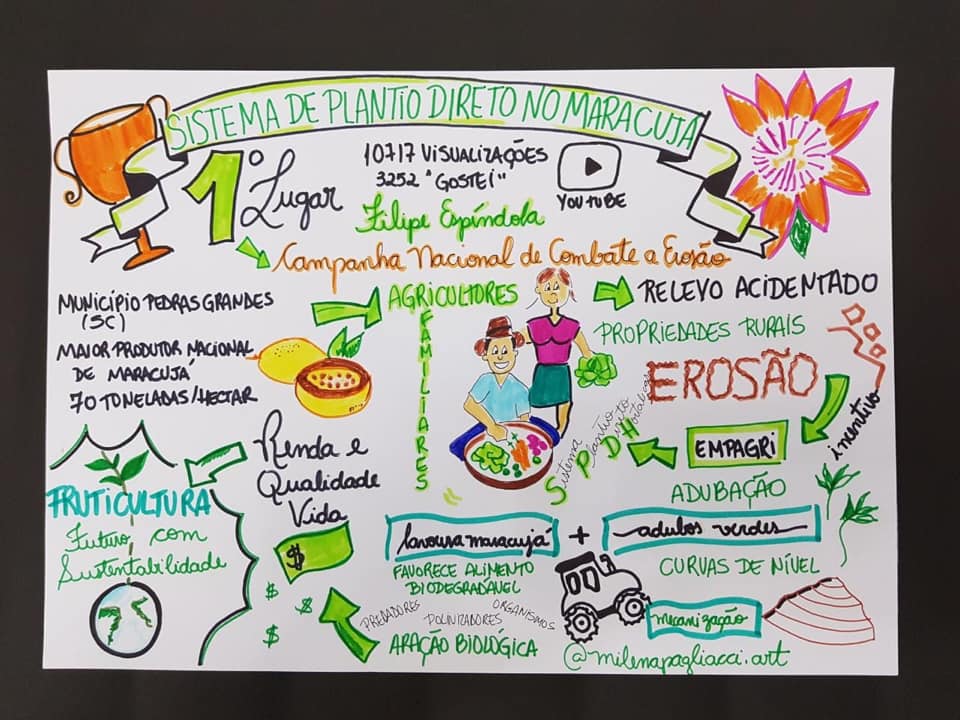 SISTEMA DE PLANTIO DIRETO NO MARACUJÁ
1º Lugar
10717 VISUALIZAÇÕES
3252 "GOSTEI"
YOUTUBE
Filipe Espíndola
Campanha Nacional de Combate a Erosão
MUNICÍPIO PEDRAS GRANDES
(SC)
MAIOR PRODUTOR NACIONAL
DE MARACUJÁ
70 TONELADAS/HECTAR
AGRICULTORES
FAMILIARES
RELEVO ACIDENTADO
PROPRIEDADES RURAIS
EROSÃO
incentivo
EMPAGRI
Sistema
Plantio
Direto
Hortaliças
ADUBAÇÃO
lavoura maracujá + adubos verdes
FAVORECE ALIMENTO
BIODEGRADÁVEL
CURVAS DE NÍVEL
mecanização
PREDADORES
POLINIZADORES
ORGANISMOS
ARAÇÃO BIOLÓGICA
Renda e
Qualidade
Vida
$
$
$
$
FRUTICULTURA
Futuro com
Sustentabilidade
@milenapagliacci.art